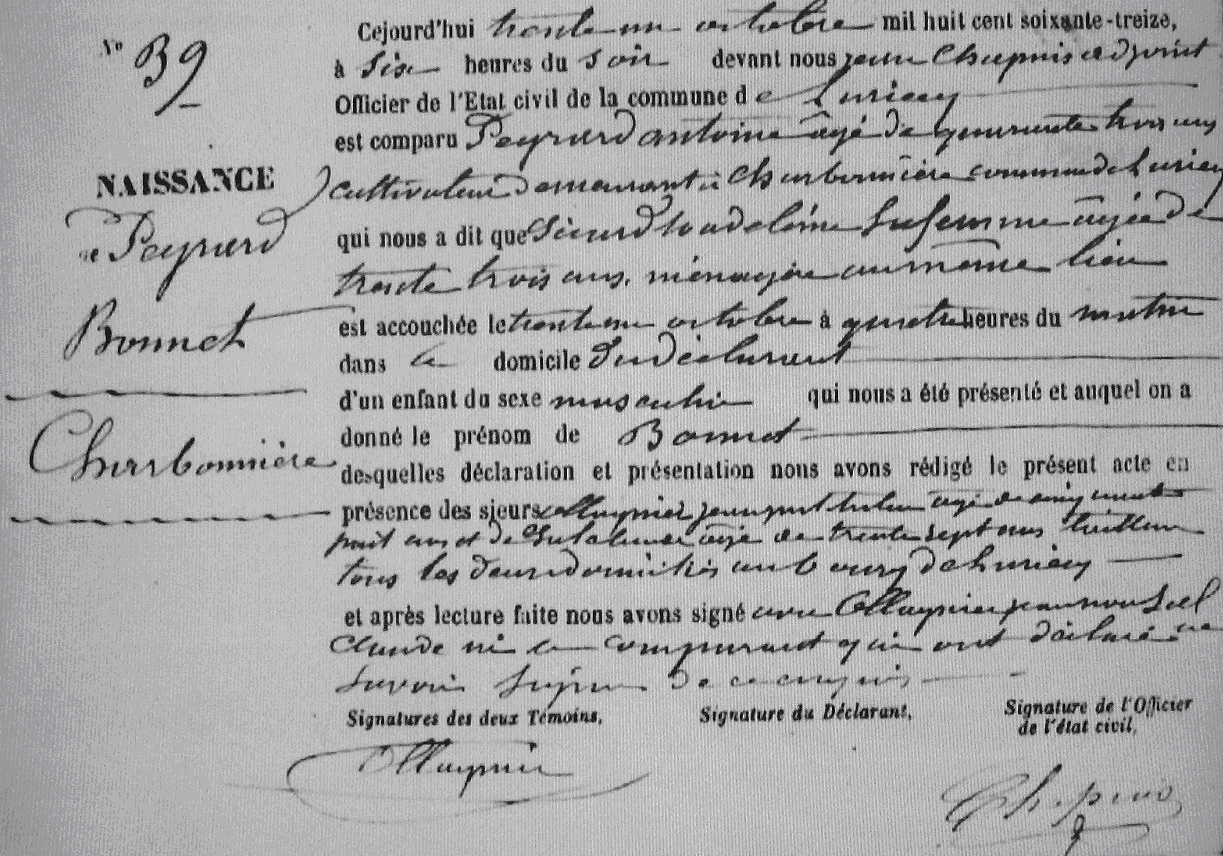 N° 39
NAISSANCE
de Peyrard
Bonnet
Charbonnière
Cejourd'hui trente un octobre mil huit cent soixante-treize,
à six heures du soir devant nous jean Chapuis adjoint
Officier de l'Etat civil de la commune de Luriecq
est comparu Peyrard antoine âgé de quarante trois ans
cultivateur demeurant à Charbonnière commune de Luriecq
qui nous a dit que Sicard Madeleine Sa femme âgée de
trente trois ans, ménagère au même lieu
est accouchée le trente un octobre à quatre heures du matin
dans le domicile du déclarant
d'un enfant du sexe masculin qui nous a été présenté et auquel on a
donné le prénom de Bonnet
desquelles déclaration et présentation nous avons rédigé le présent acte en
présence des sieurs Meynier jean âgé de cinquante
huit ans et de âgé de trente sept ans
tous les deux domiciliés au bourg de Luriecq
et après lecture faite nous avons signé avec Meynier jean non
Claude ni le comparant qui ont déclaré ne
savoir signer de ce enquis
Signatures des deux Témoins,
Signature du Déclarant,
Signature de l'Officier
de l'état civil,
Meynier
Chapuis